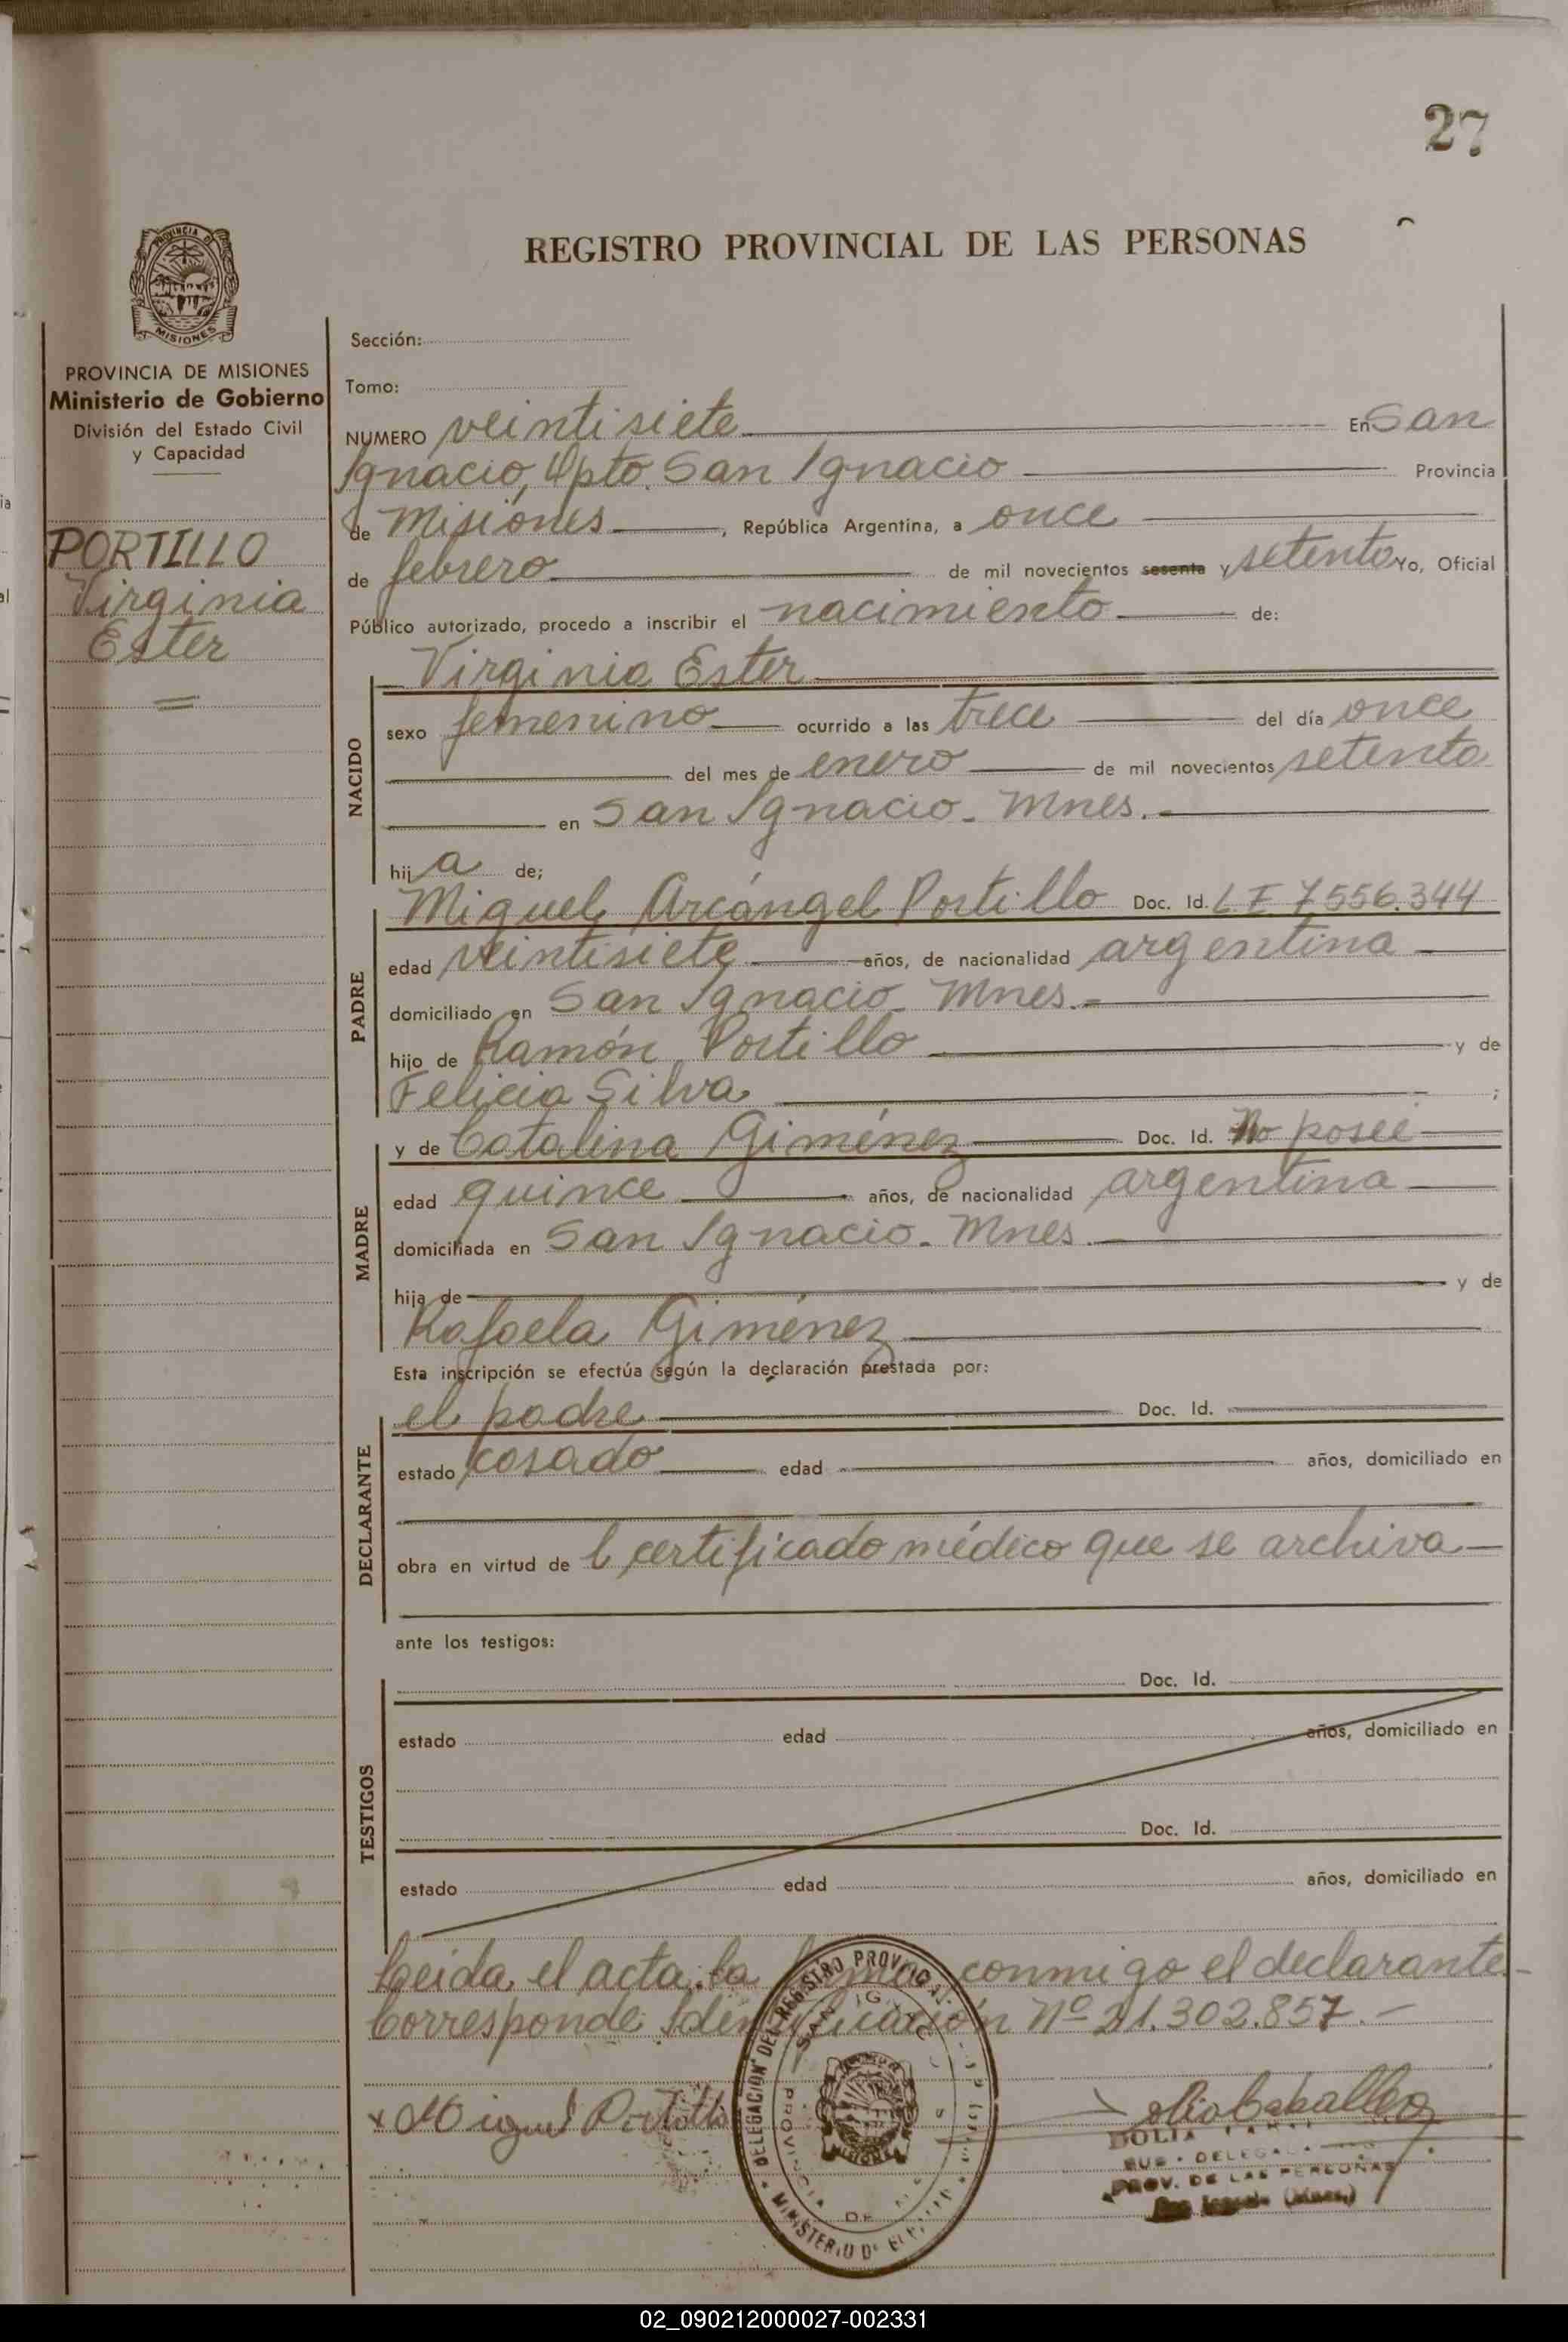 27
PROVINCIA DE
MISIONES
REGISTRO PROVINCIAL DE LAS PERSONAS
PROVINCIA DE MISIONES
Ministerio de Gobierno
División del Estado Civil
y Capacidad
PORTILLO
Virginia
Ester
Sección:
Tomo:
NUMERO veintisiete En San
Ignacio, Dpto. San Ignacio Provincia
de Misiones, República Argentina, a once
de febrero de mil novecientos sesenta y setenta Yo, Oficial
Público autorizado, procedo a inscribir el nacimiento de:
NACIDO
Virginia Ester
sexo femenino ocurrido a las trece del día once
del mes de enero de mil novecientos setenta
en San Ignacio - Mnes.
hij a de;
PADRE
Miguel Arcángel Portillo Doc. Id. L E 7556.344
edad veintisiete años, de nacionalidad argentina
domiciliado en San Ignacio - Mnes.
hijo de Ramón Portillo y de
Felicia Silva ;
MADRE
y de Catalina Giménez Doc. Id. No posee
edad quince años, de nacionalidad argentina
domiciliada en San Ignacio - Mnes.
hija de y de
Rafaela Giménez
Esta inscripción se efectúa según la declaración prestada por:
DECLARANTE
el padre Doc. Id.
estado casado edad años, domiciliado en
obra en virtud de l certificado médico que se archiva
ante los testigos:
TESTIGOS
Doc. Id.
estado edad años, domiciliado en
Doc. Id.
estado edad años, domiciliado en
Leida el acta, la conmigo el declarante
Corresponde Identificación Nº 21.302.857.-
x Miguel Portillo
DELEGACION DEL REGISTRO PROVINCIAL
SAN
PROVINCIA DE
MINISTERIO
SUB - DELEGADA
PROV. DE LAS PERSONAS
San Ignacio (Mnes.)
02_090212000027-002331